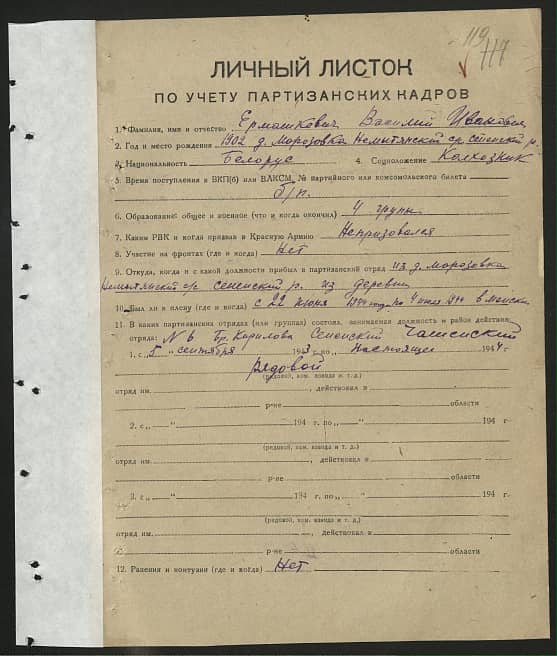 119
117
ЛИЧНЫЙ ЛИСТОК
ПО УЧЕТУ ПАРТИЗАНСКИХ КАДРОВ
1. Фамилия, имя и отчество Ермашкович Василий Иванович
2. Год и место рождения 1902 д. Морозовка Немытянский ср. Сененский р.
3. Национальность Белорус 4. Соцположение Колхозник
5. Время поступления в ВКП(б) или ВЛКСМ, № партийного или комсомольского билета
б/п.
6. Образование общее и военное (что и когда окончил) 4 групы
7. Каким РВК и когда призван в Красную Армию Непризовался
8. Участие на фронтах (где и когда) Нет
9. Откуда, когда и с какой должности прибыл в партизанский отряд из д. Морозовка
Немытянский ср. Сененский р. из деревни
10. Был ли в плену (где и когда) с 22 июня 1944 год. по 4 июля 1944 в
11. В каких партизанских отрядах (или группах) состоял, занимаемая должность и район действия
отряда: № 6 бр. Кирилова Сененский Чашенский
1. с „5" сентября 1943 г. по „ настоящее 1944 г.
рядовой
(рядовой, ком. взвода и т. д.)
отряд им. , действовал в
р-не области
2. с „ " 194 г. по „ " 194 г.
(рядовой, ком. взвода и т. д.)
отряд им. , действовал в
р-не области
3. с „ " 194 г. по „ " 194 г.
(рядовой, ком. взвода и т. д.)
отряд им. , действовал в
в р-не области
12. Ранения и контузии (где и когда) Нет